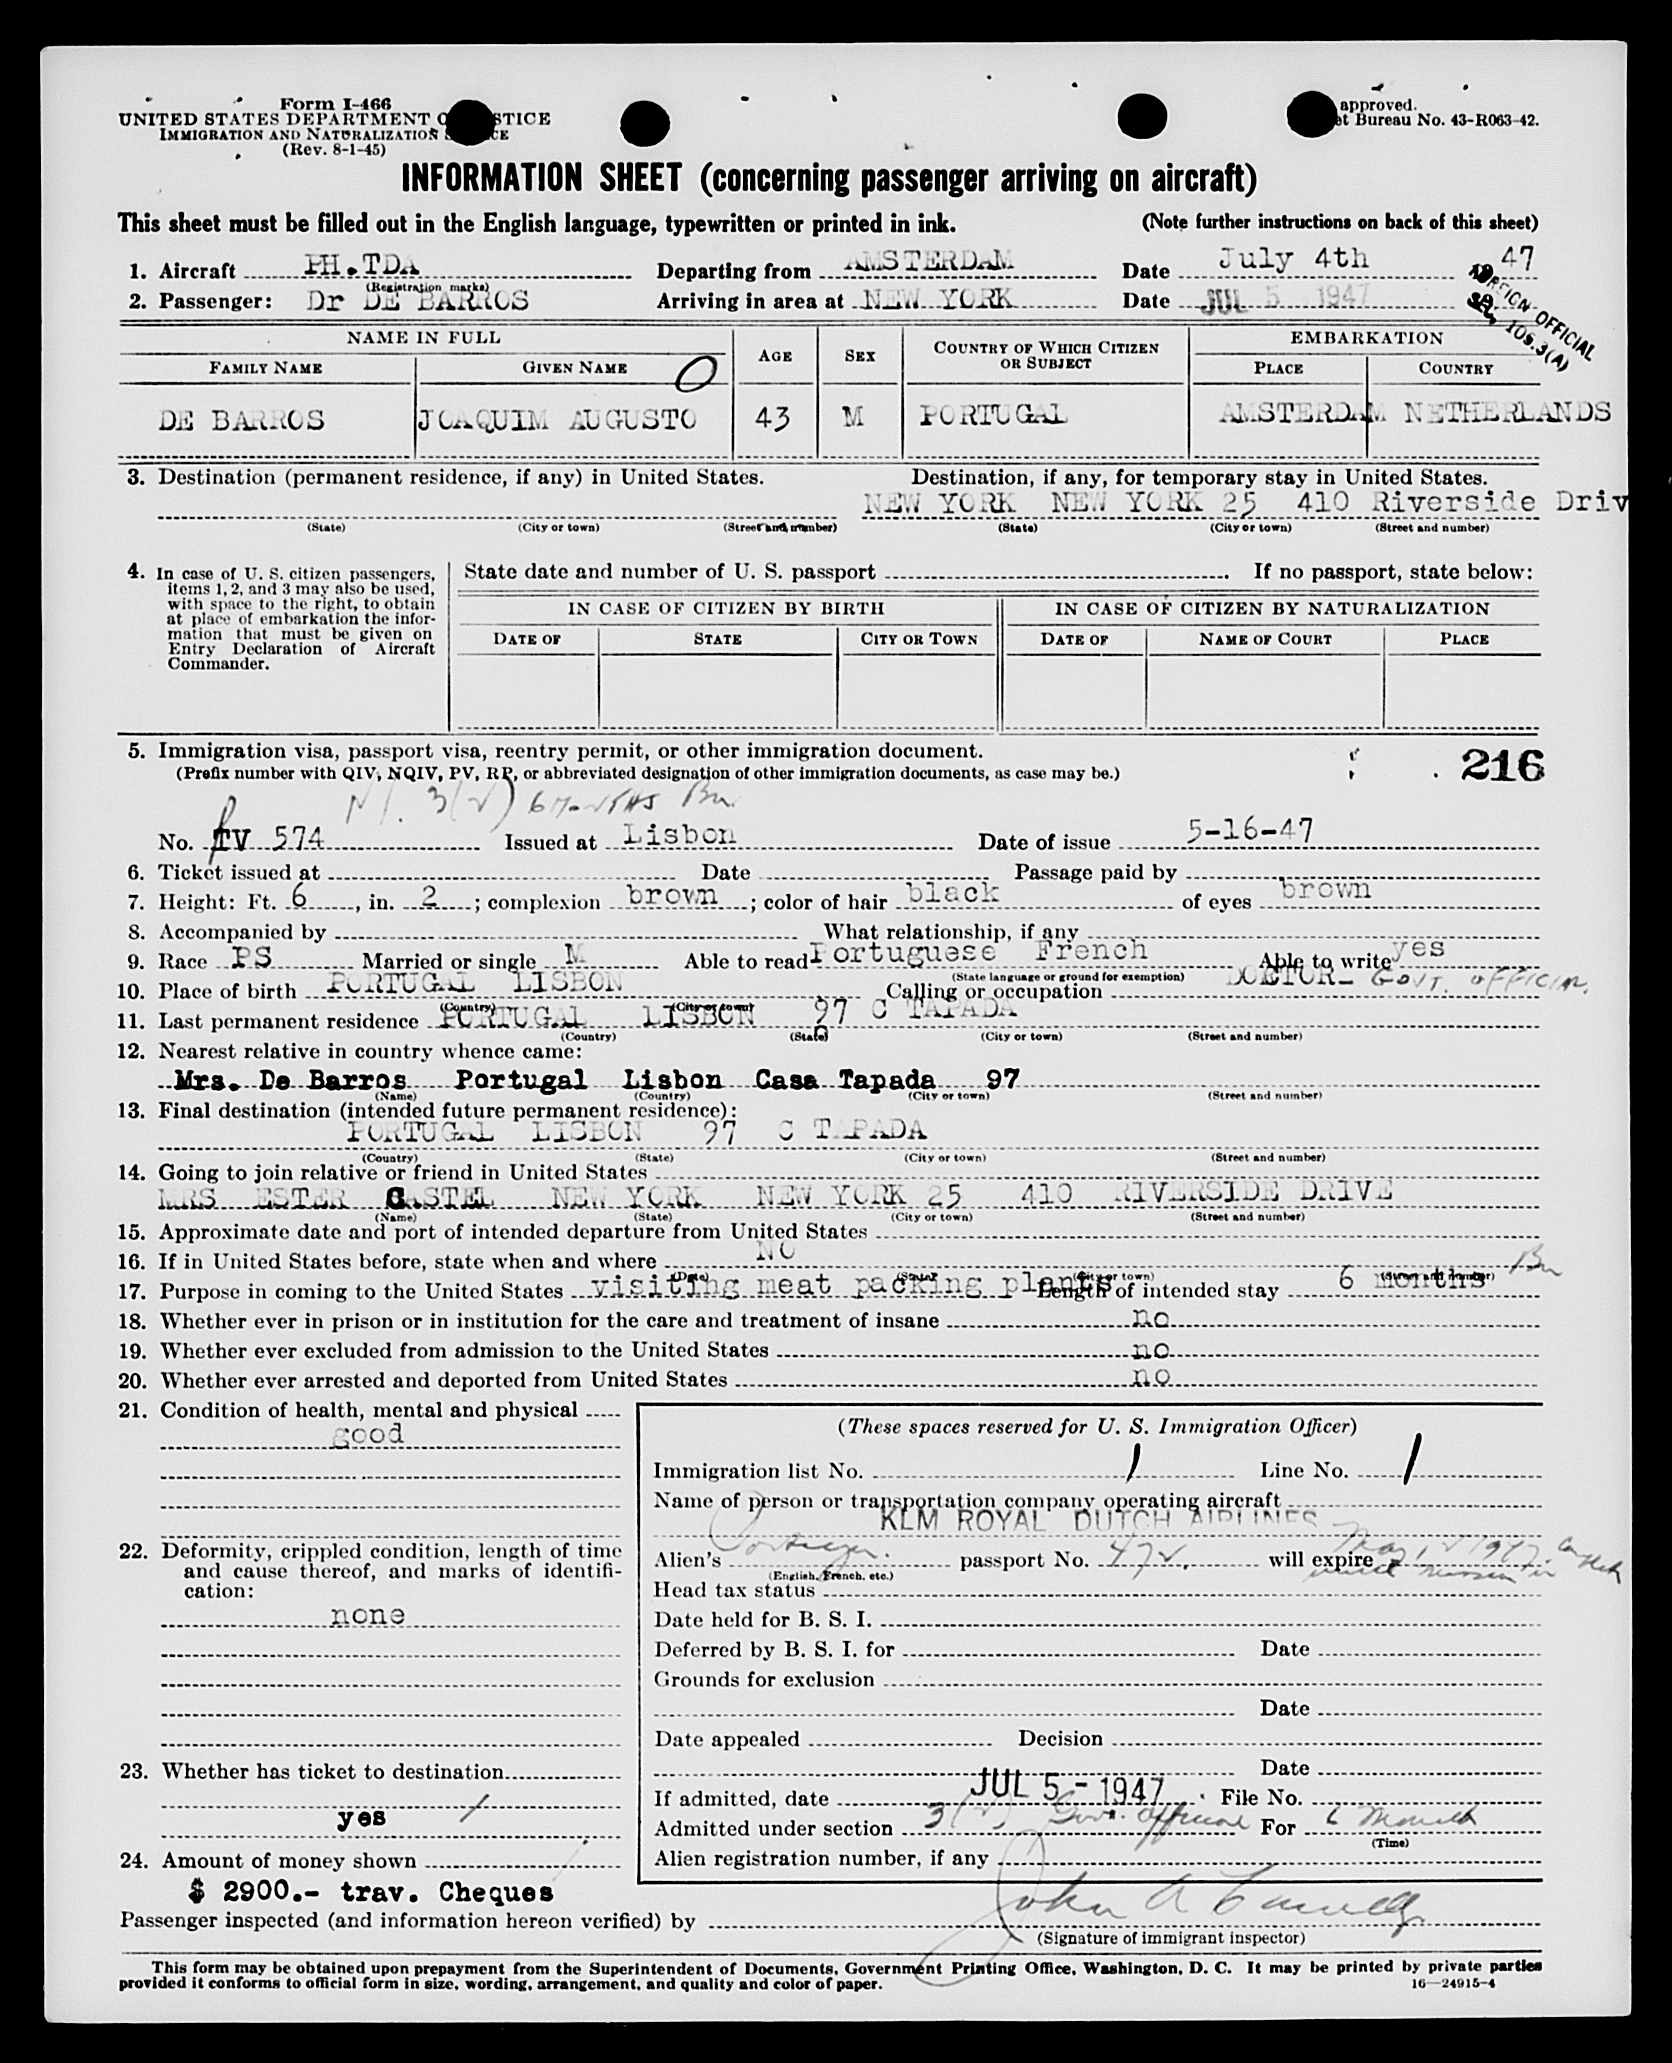 Form I-466
UNITED STATES DEPARTMENT O STICE
IMMIGRATION AND NATURALIZATION S CE
(Rev. 8-1-45)
approved.
et Bureau No. 43-R063-42.
INFORMATION SHEET (concerning passenger arriving on aircraft)
This sheet must be filled out in the English language, typewritten or printed in ink. (Note further instructions on back of this sheet)
1. Aircraft PH.TDA Departing from AMSTERDAM Date July 4th 47
(Registration marks)
2. Passenger: Dr DE BARROS Arriving in area at NEW YORK Date JUL 5 1947
FOREIGN OFFICIAL
SEC. 105.3(A)
NAME IN FULL AGE SEX COUNTRY OF WHICH CITIZEN OR SUBJECT EMBARKATION
FAMILY NAME GIVEN NAME O PLACE COUNTRY
DE BARROS JOAQUIM AUGUSTO 43 M PORTUGAL AMSTERDAM NETHERLANDS
3. Destination (permanent residence, if any) in United States. Destination, if any, for temporary stay in United States.
NEW YORK NEW YORK 25 410 Riverside Driv
(State) (City or town) (Street and number) (State) (City or town) (Street and number)
4. In case of U. S. citizen passengers, items 1, 2, and 3 may also be used, with space to the right, to obtain at place of embarkation the information that must be given on Entry Declaration of Aircraft Commander.
State date and number of U. S. passport . If no passport, state below:
IN CASE OF CITIZEN BY BIRTH IN CASE OF CITIZEN BY NATURALIZATION
DATE OF STATE CITY OR TOWN DATE OF NAME OF COURT PLACE
5. Immigration visa, passport visa, reentry permit, or other immigration document. 216
(Prefix number with QIV, NQIV, PV, RP, or abbreviated designation of other immigration documents, as case may be.)
3(2) 6 months
No. PV 574 Issued at Lisbon Date of issue 5-16-47
6. Ticket issued at Date Passage paid by
7. Height: Ft. 6, in. 2; complexion brown; color of hair black of eyes brown
8. Accompanied by What relationship, if any
9. Race PS Married or single M Able to read Portuguese French Able to write yes
(State language or ground for exemption)
10. Place of birth PORTUGAL LISBON Calling or occupation DOCTOR- GOVT. OFFICIAL
(Country) (City or town)
11. Last permanent residence PORTUGAL LISBON 97 C TAPADA
(Country) (State) (City or town) (Street and number)
12. Nearest relative in country whence came:
Mrs. De Barros Portugal Lisbon Casa Tapada 97
(Name) (Country) (City or town) (Street and number)
13. Final destination (intended future permanent residence):
PORTUGAL LISBON 97 C TAPADA
(Country) (State) (City or town) (Street and number)
14. Going to join relative or friend in United States
MRS ESTER CASTEL NEW YORK NEW YORK 25 410 RIVERSIDE DRIVE
(Name) (State) (City or town) (Street and number)
15. Approximate date and port of intended departure from United States
16. If in United States before, state when and where NO
(Date) (State) (City or town) (Street and number)
17. Purpose in coming to the United States visiting meat packing plants Length of intended stay 6 months
18. Whether ever in prison or in institution for the care and treatment of insane no
19. Whether ever excluded from admission to the United States no
20. Whether ever arrested and deported from United States no
21. Condition of health, mental and physical
good
22. Deformity, crippled condition, length of time and cause thereof, and marks of identification:
none
23. Whether has ticket to destination
yes /
24. Amount of money shown
$ 2900.- trav. Cheques
(These spaces reserved for U. S. Immigration Officer)
Immigration list No. 1 Line No. 1
Name of person or transportation company operating aircraft
KLM ROYAL DUTCH AIRLINES
Alien's Portuguese passport No. 472 will expire May 12 1947
(English, French, etc.)
Head tax status
Date held for B. S. I.
Deferred by B. S. I. for Date
Grounds for exclusion
Date
Date appealed Decision
Date
If admitted, date JUL 5 - 1947 File No.
Admitted under section 3(2) Govt. Official For 6 Months
(Time)
Alien registration number, if any
Passenger inspected (and information hereon verified) by John A
(Signature of immigrant inspector)
This form may be obtained upon prepayment from the Superintendent of Documents, Government Printing Office, Washington, D. C. It may be printed by private parties
provided it conforms to official form in size, wording, arrangement, and quality and color of paper. 16—24915-4